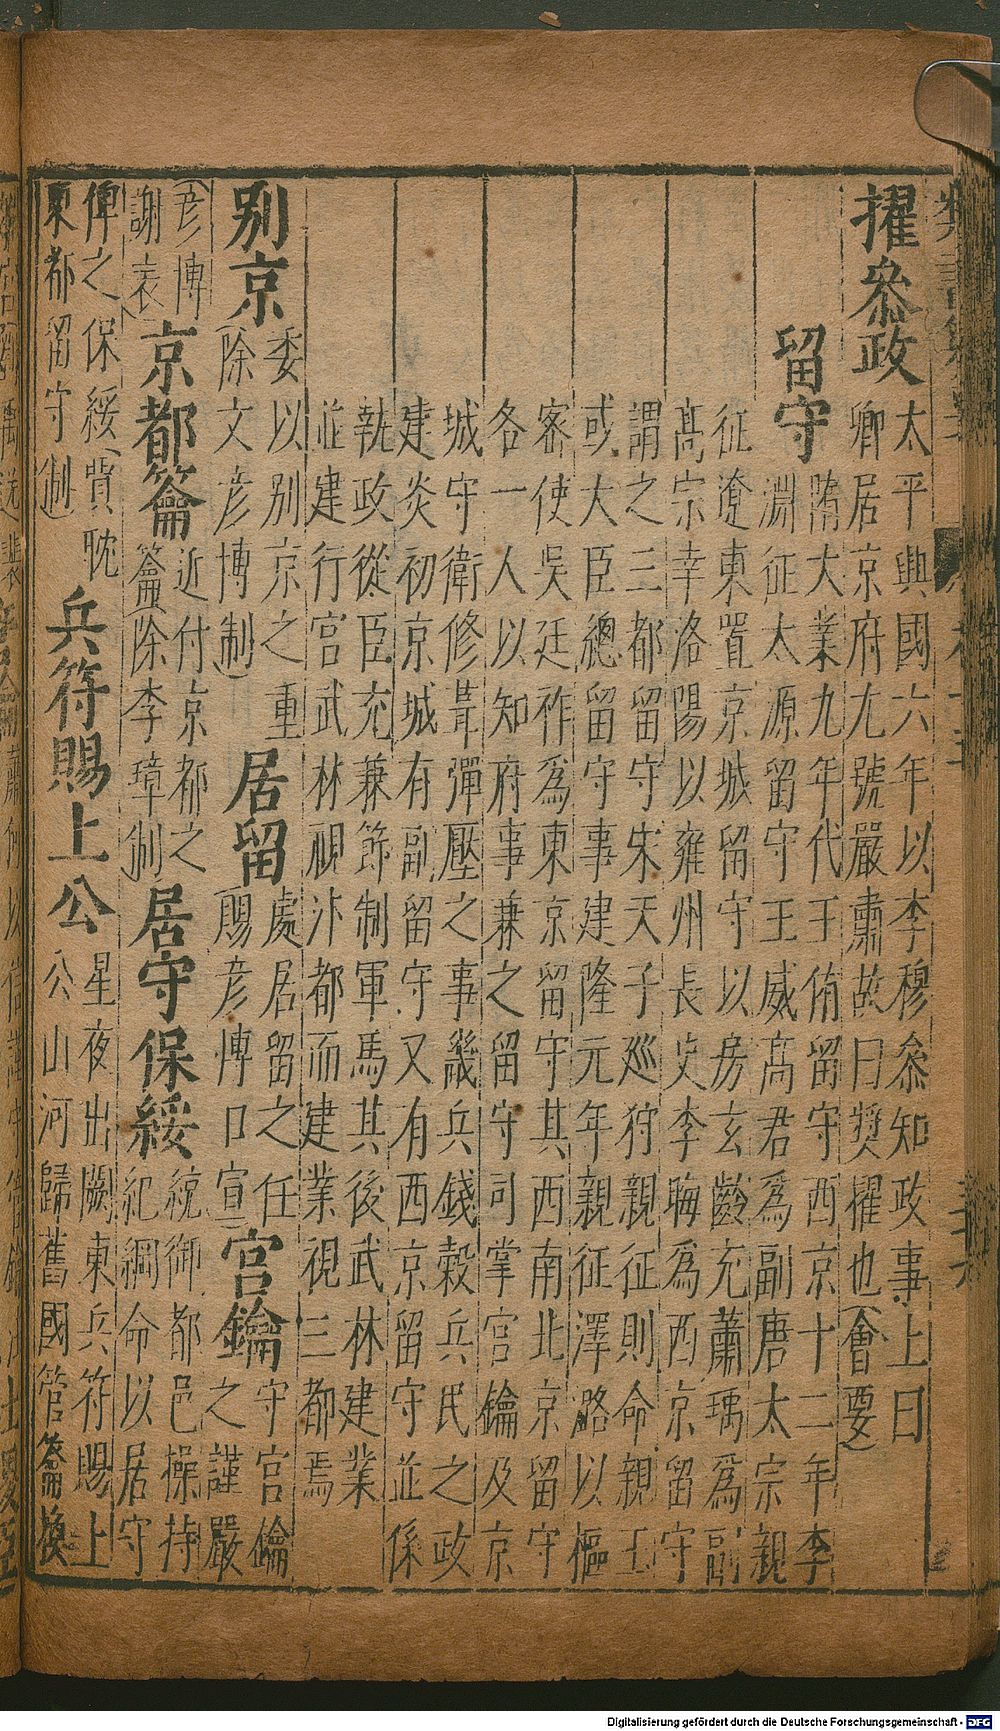 擢叅政
太平興國六年以李穆叅知政事上曰
卿居京府尤號嚴肅故曰奬擢也(會要)
留守
隋大業九年代王侑留守西京十二年李
淵征太源留守王威髙君爲副唐太宗親
征遼東置京城留守以房玄齡充蕭瑀爲副
髙宗幸洛陽以雍州長史李晦爲西京留守
謂之三都留守宋天子廵狩親征則命親王
或大臣總留守事建隆元年親征澤潞以樞
宻使吳廷祚爲東京留守其西南北京留守
各一人以知府事兼之留守司掌宮鑰及京
城守衛修葺彈壓之事畿兵錢榖兵民之政
建炎初京城有副留守又有西京留守並係
執政從臣充兼節制軍馬其後武林建業
並建行宮武林視汴都而建業視三都焉
別京
委以別京之重
除文彥博制)
居留
處居留之任
賜彥博口宣)
宮鑰
守宮鑰
之謹嚴
(彥博
謝表)
京都籥
近付京都之
籥除李璋制)
居守保綏
統御都邑操持
紀綱命以居守
俾之保綏(賞耽
東都留守制)
兵符賜上公
星夜出闕東兵符賜上
公山河歸舊國管籥換
Digitalisierung gefördert durch die Deutsche Forschungsgemeinschaft - DFG